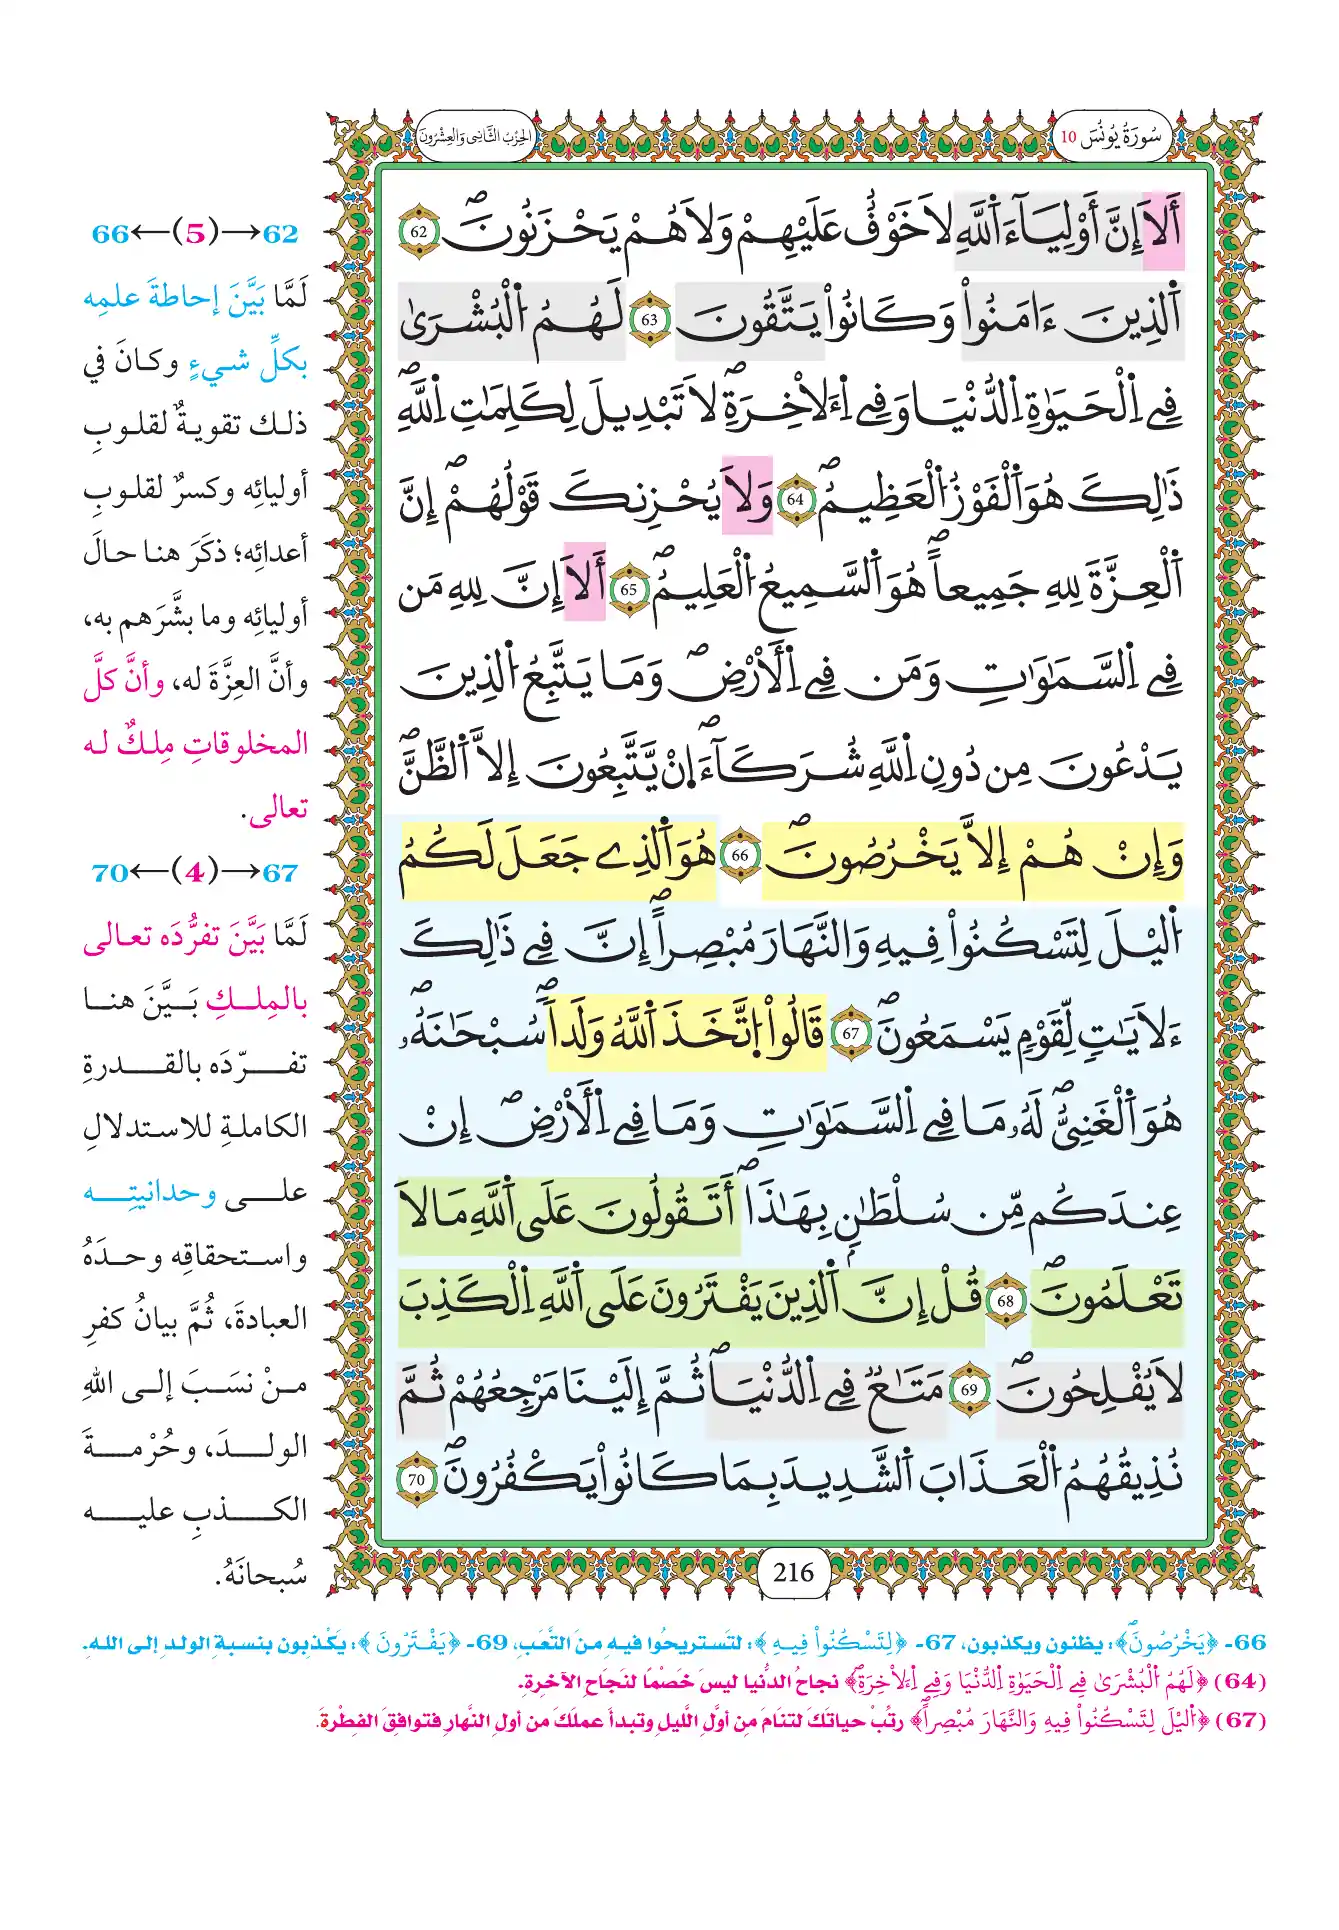 سُورَةُ يُونُسَ 10
الحِزْبُ الثَّانِي وَالعِشْرُونَ
أَلَا إِنَّ أَوْلِيَآءَ اَ۬للَّهِ لَا خَوْفٌ عَلَيْهِمْ وَلَا هُمْ يَحْزَنُونَۖ 62
اَ۬لذِينَ ءَامَنُواْ وَكَانُواْ يَتَّقُونَ 63 لَهُمُ اُ۬لْبُشْر۪ىٰ
فِي اِ۬لْحَيَوٰةِ اِ۬لدُّنْي۪ا وَفِي اِ۬لَاخِرَةِۖ لَا تَبْدِيلَ لِكَلِمَٰتِ اِ۬للَّهِۖ
ذَٰلِكَ هُوَ اَ۬لْفَوْزُ اُ۬لْعَظِيمُۖ 64 وَلَا يُحْزِنكَ قَوْلُهُمْۖ إِنَّ
اَ۬لْعِزَّةَ لِلهِ جَمِيعاًۖ هُوَ اَ۬لسَّمِيعُ اُ۬لْعَلِيمُۖ 65 أَلَا إِنَّ لِلهِ مَن
فِي اِ۬لسَّمَٰوَٰتِ وَمَن فِي اِ۬لْأَرْضِۖ وَمَا يَتَّبِعُ اُ۬لذِينَ
يَدْعُونَ مِن دُونِ اِ۬للَّهِ شُرَكَآءَۖ اِ۪نْ يَّتَّبِعُونَ إِلَّا اَ۬لظَّنَّۖ
وَإِنْ هُمْ إِلَّا يَخْرُصُونَۖ 66 هُوَ اَ۬لذِي جَعَلَ لَكُمُ
اُ۬ليْلَ لِتَسْكُنُواْ فِيهِ وَالنَّهَارَ مُبْصِراًۖ إِنَّ فِي ذَٰلِكَ
ءَلَايَٰتٖ لِّقَوْمٖ يَسْمَعُونَۖ 67 قَالُواْ اُ۪تَّخَذَ اَ۬للَّهُ وَلَداۖ سُبْحَٰنَهُۥۖ
هُوَ اَ۬لْغَنِيُّۖ لَهُۥ مَا فِي اِ۬لسَّمَٰوَٰتِ وَمَا فِي اِ۬لْأَرْضِۖ إِنْ
عِندَكُم مِّن سُلْطَٰنِۢ بِهَٰذَاۖ أَتَقُولُونَ عَلَى اَ۬للَّهِ مَا لَا
تَعْلَمُونَۖ 68 قُلْ إِنَّ اَ۬لذِينَ يَفْتَرُونَ عَلَى اَ۬للَّهِ اِ۬لْكَذِبَ
لَا يُفْلِحُونَۖ 69 مَتَٰعٌ فِي اِ۬لدُّنْي۪اۖ ثُمَّ إِلَيْنَا مَرْجِعُهُمْ ثُمَّ
نُذِيقُهُمُ اُ۬لْعَذَابَ اَ۬لشَّدِيدَ بِمَا كَانُواْ يَكْفُرُونَۖ 70
216
62→(5)←66
لَمَّا بَيَّنَ إحاطةَ علمِه
بكلِّ شيءٍ وكانَ في
ذلك تقويةٌ لقلوبِ
أوليائِه وكسرٌ لقلوبِ
أعدائِه؛ ذكَرَ هنا حالَ
أوليائِه وما بشَّرَهم به،
وأنَّ العِزَّةَ له، وأنَّ كلَّ
المخلوقاتِ مِلكٌ له
تعالى.
67→(4)←70
لَمَّا بَيَّنَ تفرُّدَه تعالى
بالمِلكِ بَيَّنَ هنا
تفرّدَه بالقدرةِ
الكاملةِ للاستدلالِ
على وحدانيتِه
واستحقاقِه وحدَهُ
العبادةَ، ثُمَّ بيانُ كفرِ
منْ نسَبَ إلى اللهِ
الولدَ، وحُرْمةَ
الكذبِ عليه
سُبحانَهُ.
66- ﴿يَخْرُصُونَۖ﴾: يظنون ويكذبون، 67- ﴿لِتَسْكُنُواْ فِيهِ﴾: لتَستريحُوا فيه مِنَ التَّعَبِ، 69- ﴿يَفْتَرُونَ﴾: يَكْذِبون بنسبةِ الولدِ إلى اللهِ.
(64) ﴿لَهُمُ اُ۬لْبُشْرَىٰ فِي اِ۬لْحَيَوٰةِ اِ۬لدُّنْيَا وَفِي اِ۬لَاخِرَةِۖ﴾ نجاحُ الدُّنيا ليسَ خَصْمًا لنَجَاحِ الآخرةِ.
(67) ﴿اُ۬ليْلَ لِتَسْكُنُواْ فِيهِ وَالنَّهَارَ مُبْصِراًۖ﴾ رتِّبْ حياتَكَ لتنَامَ مِن أوَّلِ اللَّيلِ وتبدأَ عملَكَ من أولِ النَّهارِ فتوافِقَ الفِطْرةَ.